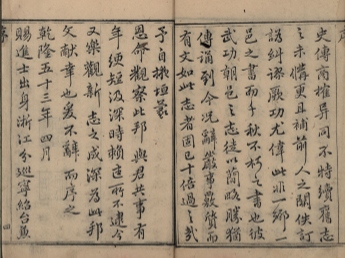 史傳商榷異同不特續舊志
之未備更且補前人之闕佚訂
謬糾譌厥功尤偉此非一鄉一
邑之書而千秋不朽之書也彼
武功朝邑之志徒以簡略勝猶
傳誦到今況辭嚴事覈贍而
有文如此志者固已十倍過之哉
予自垣蒙
恩命觀察此邦與君共事有
年綆短汲深時賴匡所不逮今
又樂觀新志之成深為此邦
文獻幸也爰不辭而序之
乾隆五十三年四月
賜進士出身浙江分巡寧紹台兼
序
四